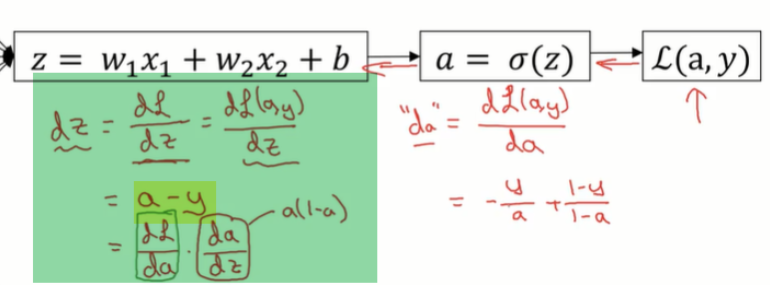 z = w₁x₁ + w₂x₂ + b
a = σ(z)
ℒ(a, y)
dz = dℒ/dz = dℒ(a,y)/dz
= a - y
= dℒ/da · da/dz
a(1-a)
"da" = dℒ(a,y)/da
= -y/a + (1-y)/(1-a)